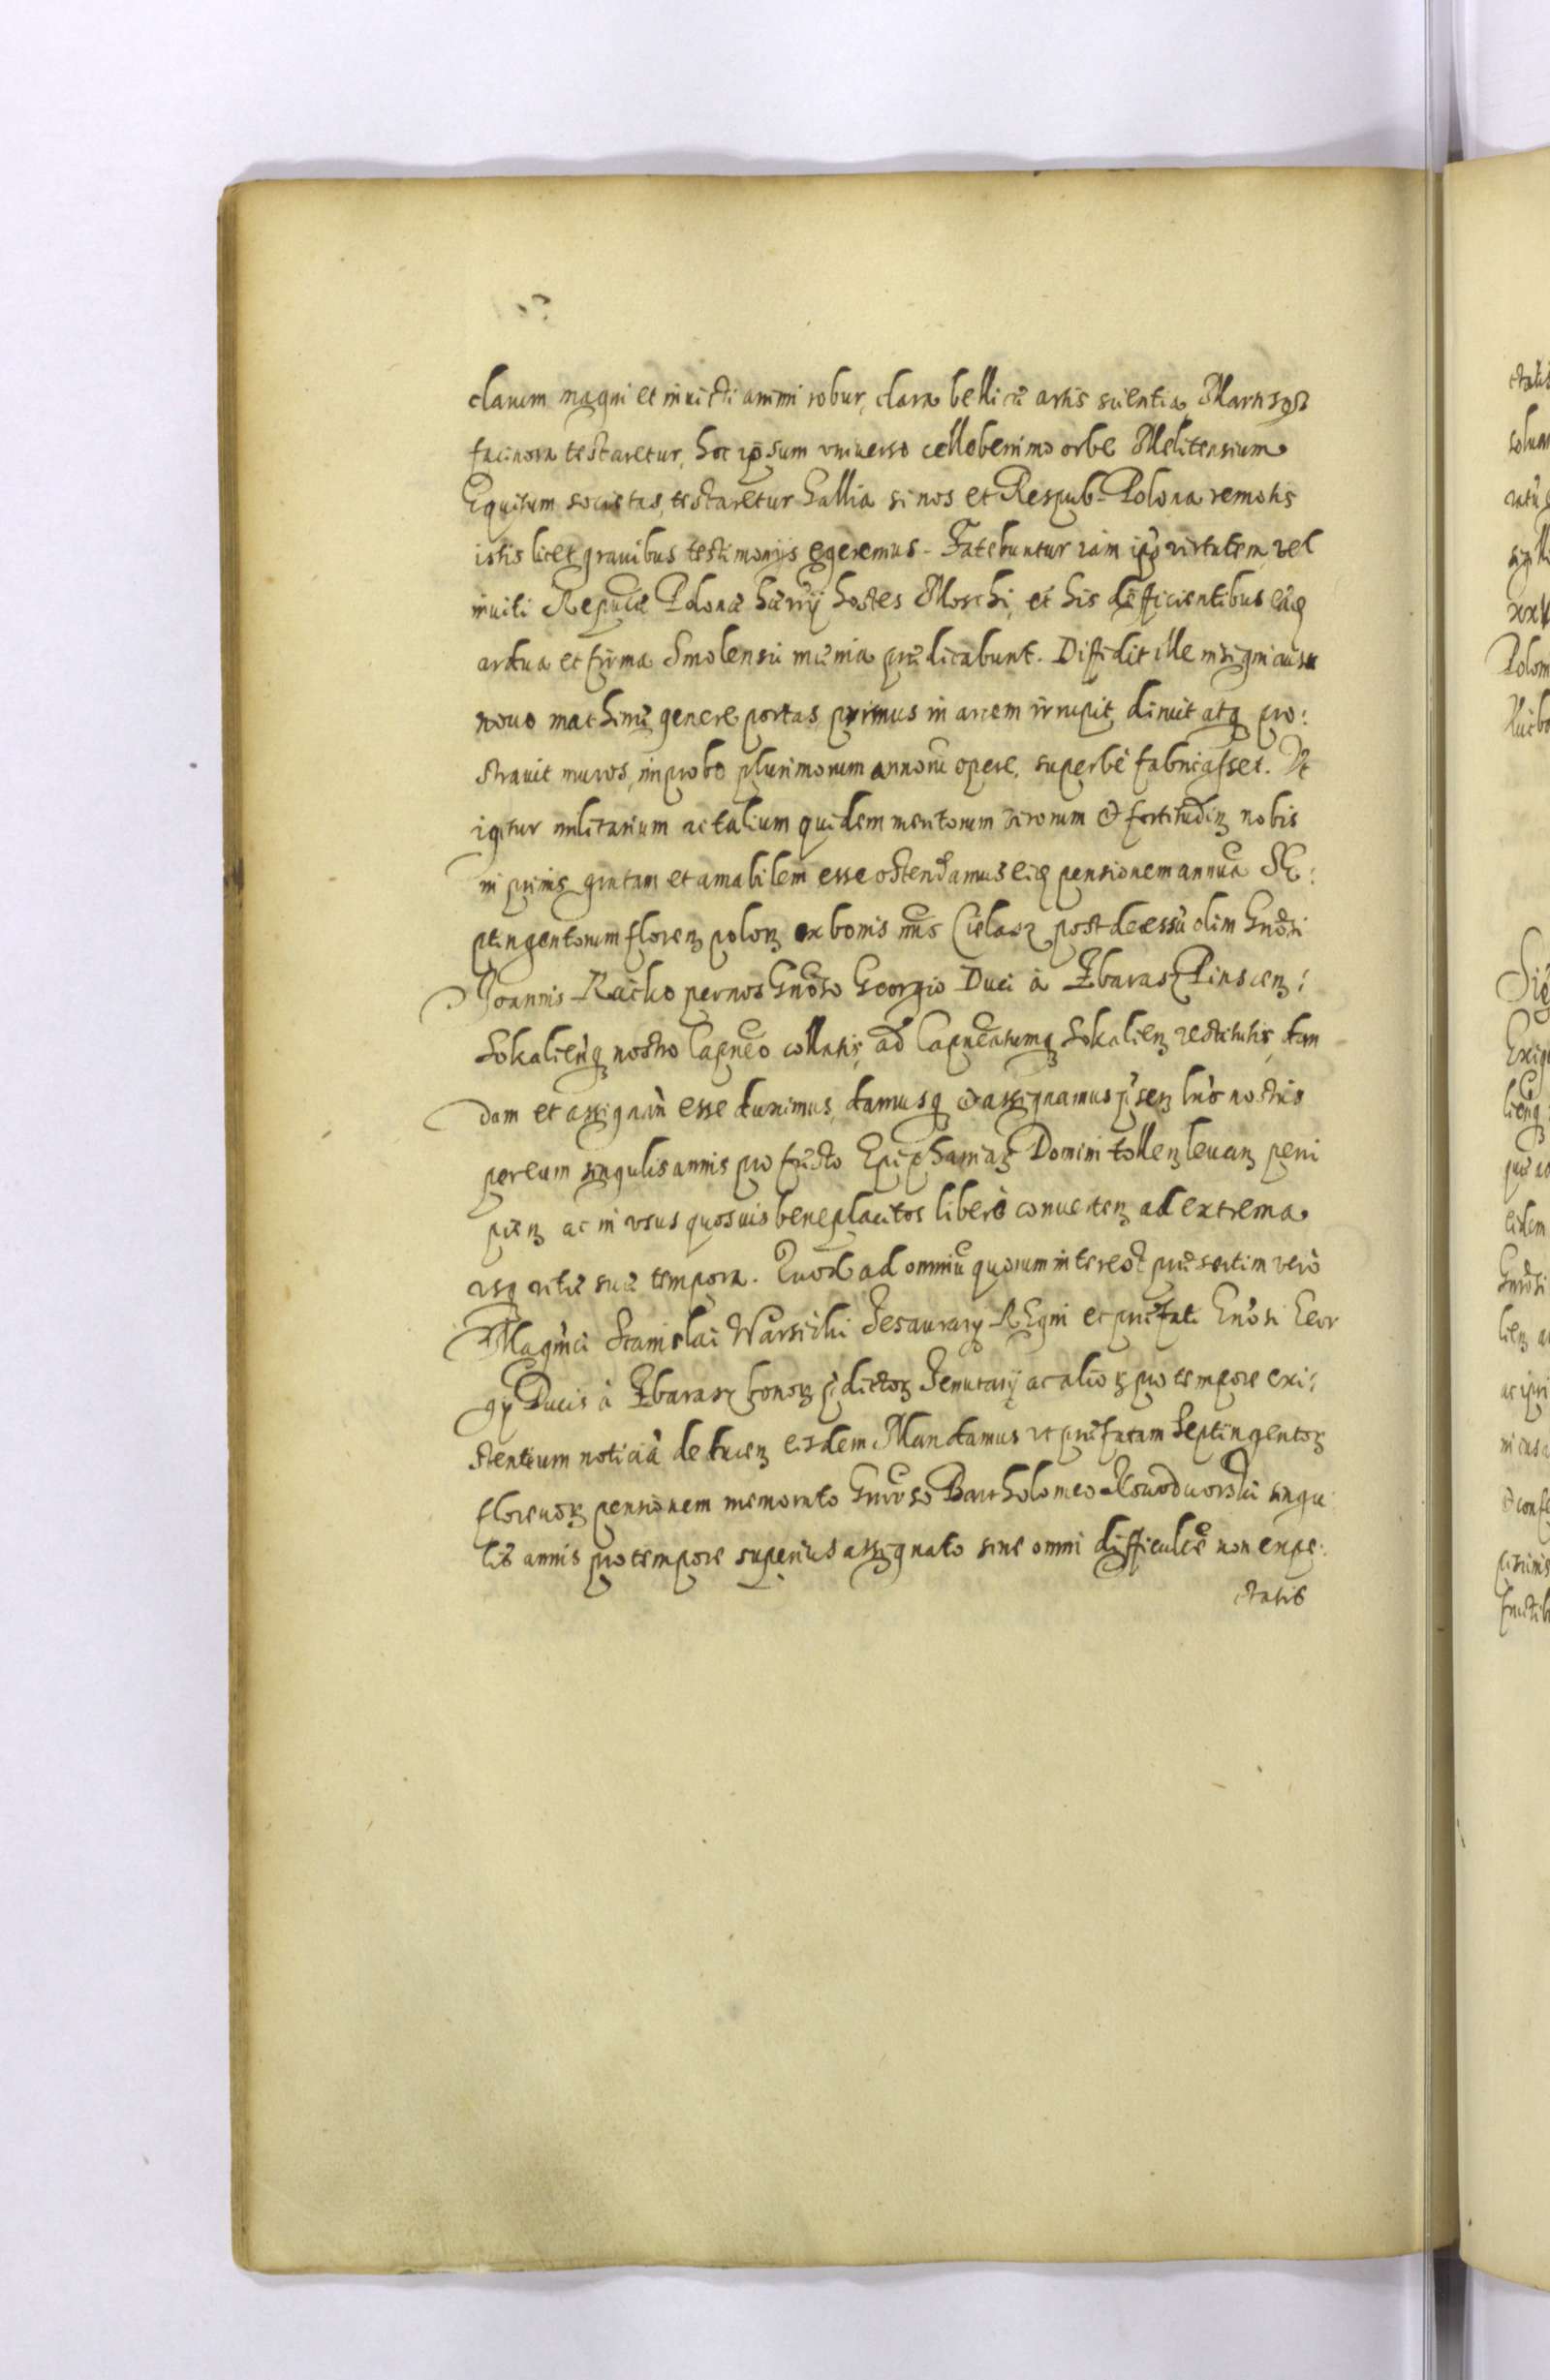 clarum magni et inuicti animi robur, clara bellicæ artis scientia, Martisq
facinora testaretur, hoc ipsum vniuerso celleberrimo orbe Melitensium
Equitum societas, testaretur Gallia si nos et Respub. Polona remotis
istis licet grauibus testimonijs egeremus. Fatebuntur iam ipō virtutem, vel
inuiti Reipuce Polonæ hostes Moschi, et his deficientibus
ardua et firma Smolensci mænia prædicabunt. Disiicit ille insigni ausu
nouo machinæ genere portas, primus in arcem irrupit, diruit atq pro:
strauit muros, improbo plurimorum annorū opere, superbè fabricasset. Vt
igitur militarium ac talium quidem meritorum virorum & fortitudinē nobis
in primis gratam et amabilem esse ostendamus eiq pensionem annuā Se:
ptingentorum floren polon ex bonis nris Cielasz post decessū olim Gnosi
Joannis Racko per nos Gnoso Georgio Duci à Zbaras Pinscen:
Sokalienq nostro Capneo collatis, ad Capneatumq Sokalien restitutis, dan
dam et assignan esse duximus, damusq & assignamus psen lris nostris
per eum singulis annis pro festo Epiphaniar Domini tollen leuan perci
pien ac in vsus quosuis beneplacitos liberè conuerten ad extrema
vsq vitæ suæ tempora. Quod ad omniū quorum interest præsertim verò
Magnci Stanislai Warsicki Tesaurary Regni et præfati Gnosi Geor
gy Ducis à Zbaras bonor pdictor Tenutarij ac alior pro tempore exi:
stentium noticiā deducen eisdem Mandamus vt præfatam Septingentor
florenor pensionem memorato Gnoso Bartholomeo Nowodworski singu
lis annis pro tempore superius assignato sine omni difficulte non expe:
ctatis